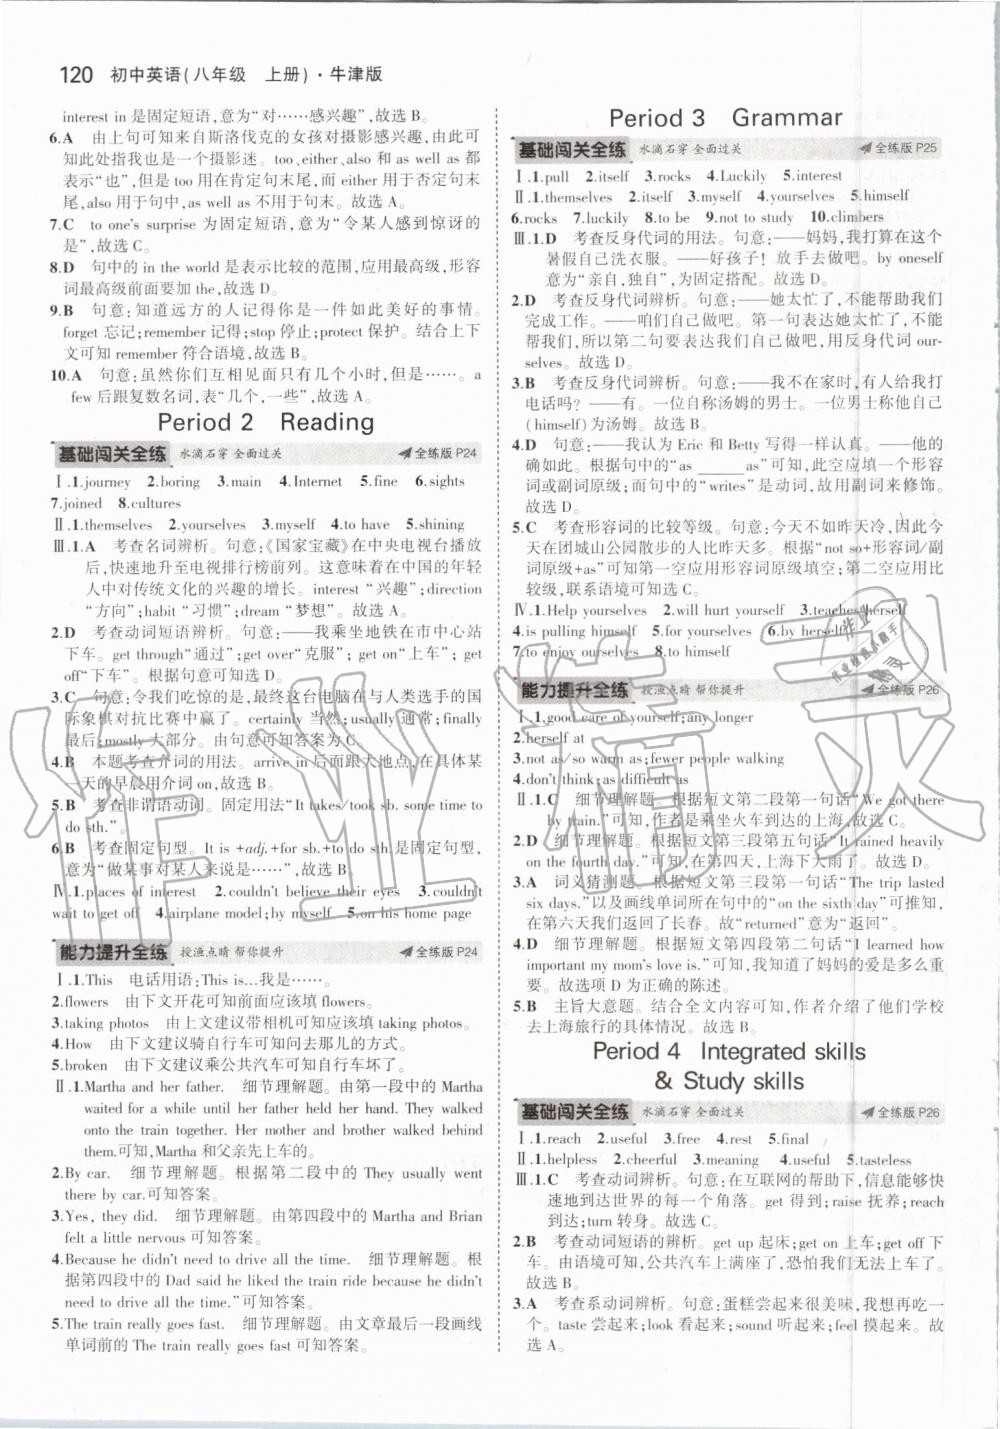 120 初中英语(八年级 上册)·牛津版
interest in 是固定短语,意为“对……感兴趣”。故选B。
6.A 由上句可知来自斯洛伐克的女孩对摄影感兴趣,由此可
知此处指我也是一个摄影迷。too、either、also 和 as well as 都
表示“也”,但是 too 用在肯定句末尾,而 either 用于否定句末
尾,also 用于句中,as well as 不用于句末。故选 A。
7.C to one's surprise 为固定短语,意为“令某人感到惊讶的
是”,故选 C。
8.D 句中的 in the world 是表示比较的范围,应用最高级,形容
词最高级前面要加 the,故选 D。
9.B 句意:知道远方的人记得你是一件如此美好的事情。
forget 忘记;remember 记得;stop 停止;protect 保护。结合上下
文可知 remember 符合语境,故选 B。
10.A 句意:虽然你们互相见面只有几个小时,但是……。a
few 后跟复数名词,表“几个,一些”,故选 A。
Period 2 Reading
基础闯关全练 水滴石穿 全面过关 全练版 P24
Ⅰ.1.journey 2.boring 3.main 4.Internet 5.fine 6.sights
7.joined 8.cultures
Ⅱ.1.themselves 2.yourselves 3.myself 4.to have 5.shining
Ⅲ.1.A 考查名词辨析。句意:《国家宝藏》在中央电视台播放
后,快速地升至电视排行榜前列。这意味着在中国的年轻
人中对传统文化的兴趣的增长。interest “兴趣”;direction
“方向”;habit “习惯”;dream “梦想”。故选 A。
2.D 考查动词短语辨析。句意:——我乘坐地铁在市中心站
下车。get through“通过”;get over“克服”;get on“上车”;get
off“下车”。根据句意可知选 D。
3.C 句意:令我们吃惊的是,最终这台电脑在与人类选手的国
际象棋对抗比赛中赢了。certainly 当然;usually 通常;finally
最后;mostly 大部分。由句意可知答案为 C。
4.B 本题考查介词的用法。arrive in 后面跟大地点,在具体某
一天的早晨用介词 on,故选 B。
5.B 考查非谓语动词。固定用法“It takes/took sb. some time to
do sth.”。
6.B 考查固定句型。It is +adj.+for sb.+to do sth.是固定句型,
意为“做某事对某人来说是……”,故选 B。
Ⅳ.1.places of interest 2.couldn't believe their eyes 3.couldn't
wait to get off 4.airplane model;by myself 5.on his home page
能力提升全练 授渔点睛 帮你提升 全练版 P24
Ⅰ.1.This 电话用语:This is…我是……。
2.flowers 由下文开花可知前面应该填 flowers。
3.taking photos 由上文建议带相机可知应该填 taking photos。
4.How 由下文建议骑自行车可知问去那儿的方式。
5.broken 由下文建议乘公共汽车可知自行车坏了。
Ⅱ.1.Martha and her father. 细节理解题。由第一段中的 Martha
waited for a while until her father held her hand. They walked
onto the train together. Her mother and brother walked behind
them.可知,Martha 和父亲先上车的。
2.By car. 细节理解题。根据第二段中的 They usually went
there by car.可知答案。
3.Yes, they did. 细节理解题。由第四段中的 Martha and Brian
felt a little nervous 可知答案。
4.Because he didn't need to drive all the time. 细节理解题。根
据第四段中的 Dad said he liked the train ride because he didn't
need to drive all the time.”可知答案。
5.The train really goes fast. 细节理解题。由文章最后一段画线
单词前的 The train really goes fast 可知答案。
Period 3 Grammar
基础闯关全练 水滴石穿 全面过关 全练版 P25
Ⅰ.1.pull 2.itself 3.rocks 4.Luckily 5.interest
Ⅱ.1.themselves 2.itself 3.myself 4.yourselves 5.himself
6.rocks 7.luckily 8.to be 9.not to study 10.climbers
Ⅲ.1.D 考查反身代词的用法。句意:——妈妈,我打算在这个
暑假自己洗衣服。——好孩子!放手去做吧。by oneself
意为“亲自,独自”,为固定搭配。故选 D。
2.D 考查反身代词辨析。句意:——她太忙了,不能帮助我们
完成工作。——我们自己做吧。第一句表达她太忙了,不能
帮我们,所以第二句要表达我们自己做吧,用反身代词 our-
selves。故选 D。
3.B 考查反身代词辨析。句意:——我不在家时,有人给我打
电话吗?——有。一位自称汤姆的男士。一位男士称自己
(himself)为汤姆。故选 B。
4.D 句意:——我认为 Eric 和 Betty 写得一样认真。——他的
的确如此。根据句中的“as ______ as”可知,此空应填一个形容
词或副词原级;而句中的“writes”是动词,故用副词来修饰。
故选 D。
5.C 考查形容词的比较等级。句意:今天不如昨天冷,因此今
天在团城山公园散步的人比昨天多。根据“not so+形容词/副
词原级+as”可知第一空应用形容词原级填空;第二空应用比
较级,联系语境可知选 C。
Ⅳ.1.Help yourselves 2.will hurt yourself 3.teaches herself
4.is pulling himself 5.for yourselves 6.by herself
7.to enjoy ourselves 8.to himself
能力提升全练 授渔点睛 帮你提升 全练版 P26
Ⅰ.1.good care of yourself;any longer
2.herself at
3.not as/so warm as;fewer people walking
4.don't think;as difficult as
Ⅱ.1.C 细节理解题。根据短文第二段第一句话“We got there
by train.”可知,作者是乘坐火车到达的上海,故选 C。
2.D 细节理解题。根据短文第三段第五句话“It rained heavily
on the fourth day.”可知,在第四天,上海下大雨了。故选 D。
3.A 词义猜测题。根据短文第三段第一句话“The trip lasted
six days.”以及画线单词所在的句中的“on the sixth day”可知,
在第六天我们返回了长春。故“returned”意为“返回”。
4.D 细节理解题。根据短文第四段第二句话“I learned how
important my mom's love is.”可知,作者知道了妈妈的爱是多么
重要。故选项 D 为正确的陈述。
5.B 主旨大意题。结合全文内容可知,作者介绍了他们学校
去上海旅行的具体情况。故选 B。
Period 4 Integrated skills
& Study skills
基础闯关全练 水滴石穿 全面过关 全练版 P26
Ⅰ.1.reach 2.useful 3.free 4.rest 5.final
Ⅱ.1.helpless 2.cheerful 3.meaning 4.useful 5.tasteless
Ⅲ.1.C 考查动词辨析。句意:在互联网的帮助下,信息能够快
速地到达世界的每一个角落。get 得到;raise 抚养;reach
到达;turn 转身。故选 C。
2.B 考查动词短语的辨析。get up 起床;get on 上车;get off 下
车。由语境可知,公共汽车上满座了,恐怕我们无法上车。
故选 B。
3.A 考查系动词辨析。句意:蛋糕尝起来很美味,我想再吃一
个。taste 尝起来;look 看起来;sound 听起来;feel 摸起来。故
选 A。
作业精灵